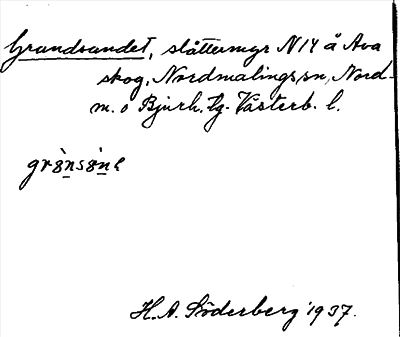 Grundsundet, slåttermyr N14 å Ava
skog, Nordmalings sn, Nord-
m. o Bjurh. tg. Västerb. l.
H. A. Söderberg 1937.